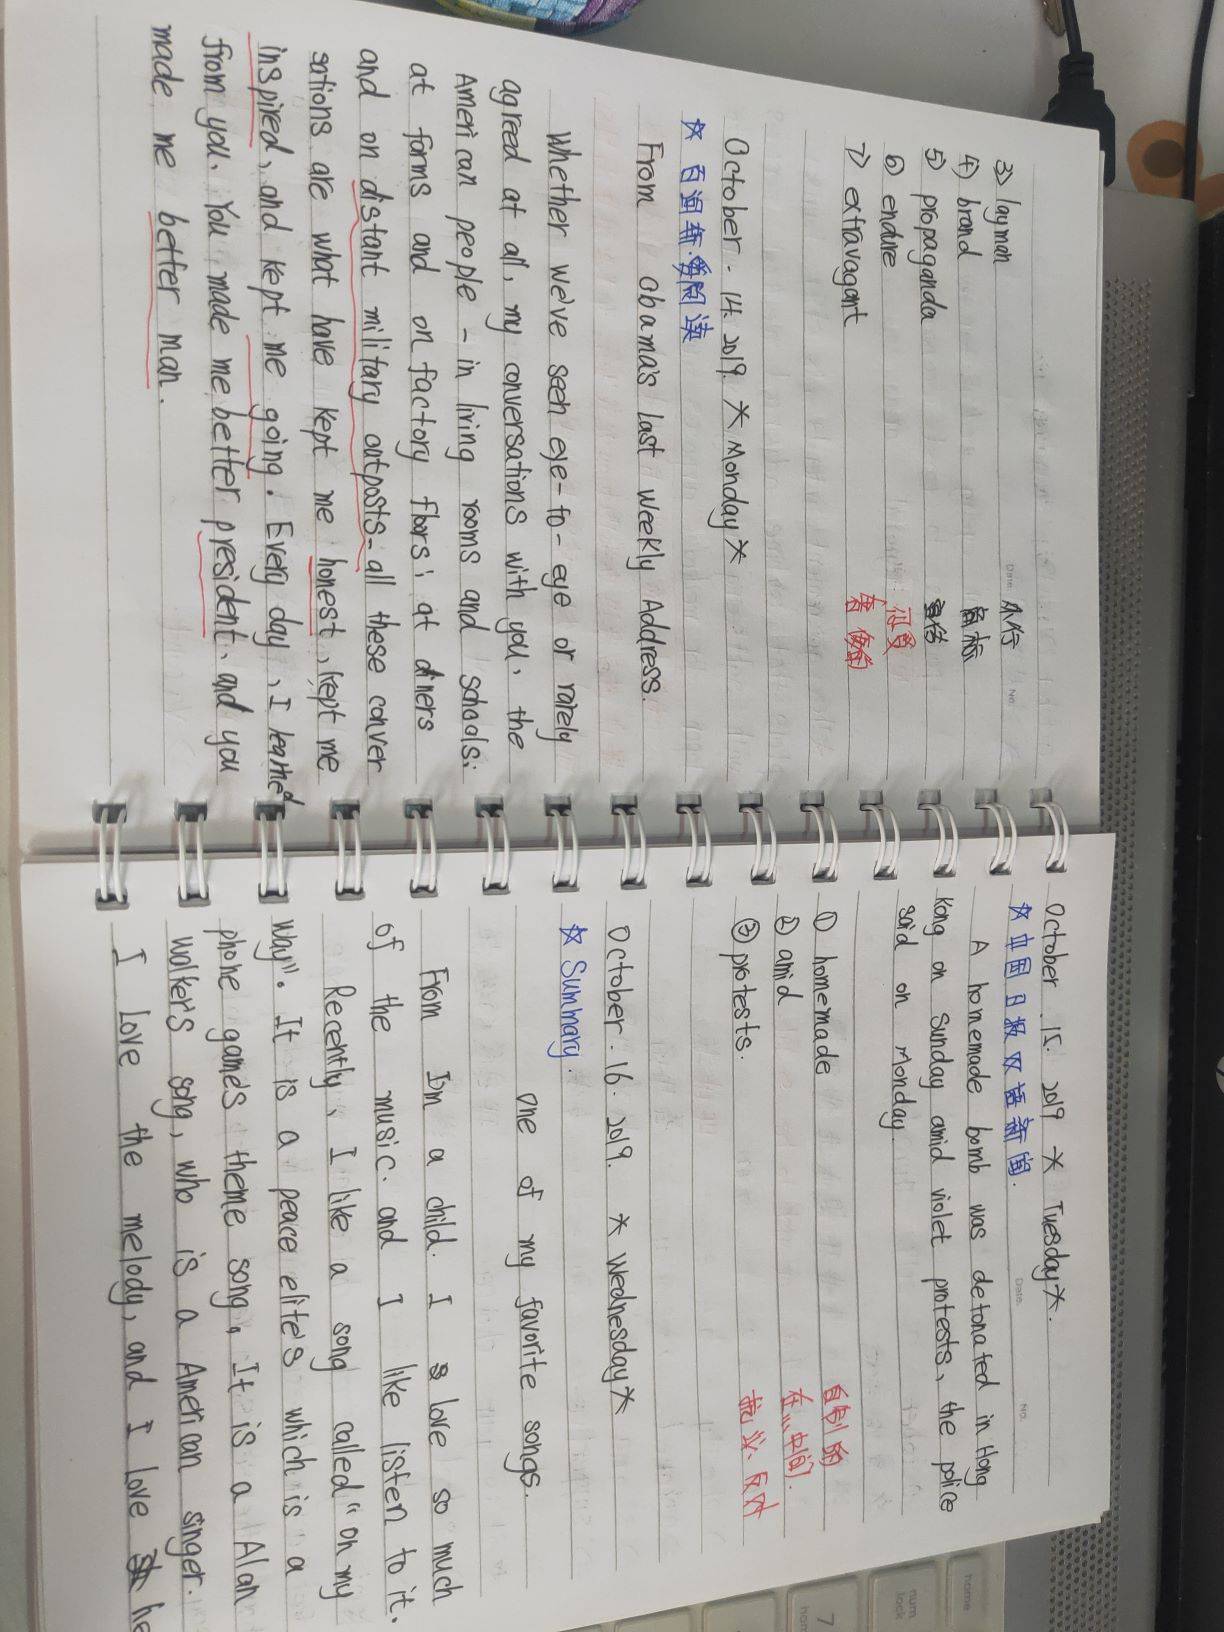 Date. No.
3) layman 外行
4) brand 商标
5) propaganda 宣传
6) endure 忍受
7) extravagant 奢侈的
October. 14. 2019. * Monday *
☆ 百词斩.爱阅读
From obama's last weekly Address.
Whether we've seen eye-to-eye or rarely
agreed at all, my conversations with you, the
American people - in living rooms and schools;
at forms and on factory floors; at diners
and on distant military outposts - all these conver
sations are what have kept me honest, kept me
inspired, and kept me going. Every day, I learned
from you. You made me better president, and you
made me better man.
October 15. 2019 * Tuesday *.
Date. No.
☆ 中国日报双语新闻.
A homemade bomb was detonated in Hong
Kong on Sunday amid violet protests, the police
said on Monday
① homemade 自制的
② amid 在...中间.
③ protests. 抗议、反对
October. 16. 2019. * Wednesday *
☆ Summary.
One of my favorite songs.
From I'm a child. I love so much
of the music. and I like listen to it.
Recently, I like a song called "on my
way". It is a peace elite's which is a
phone game's theme song, It is a Alan
walker's song, who is a American singer.
I love the melody, and I love he
home
num
lock
7
home